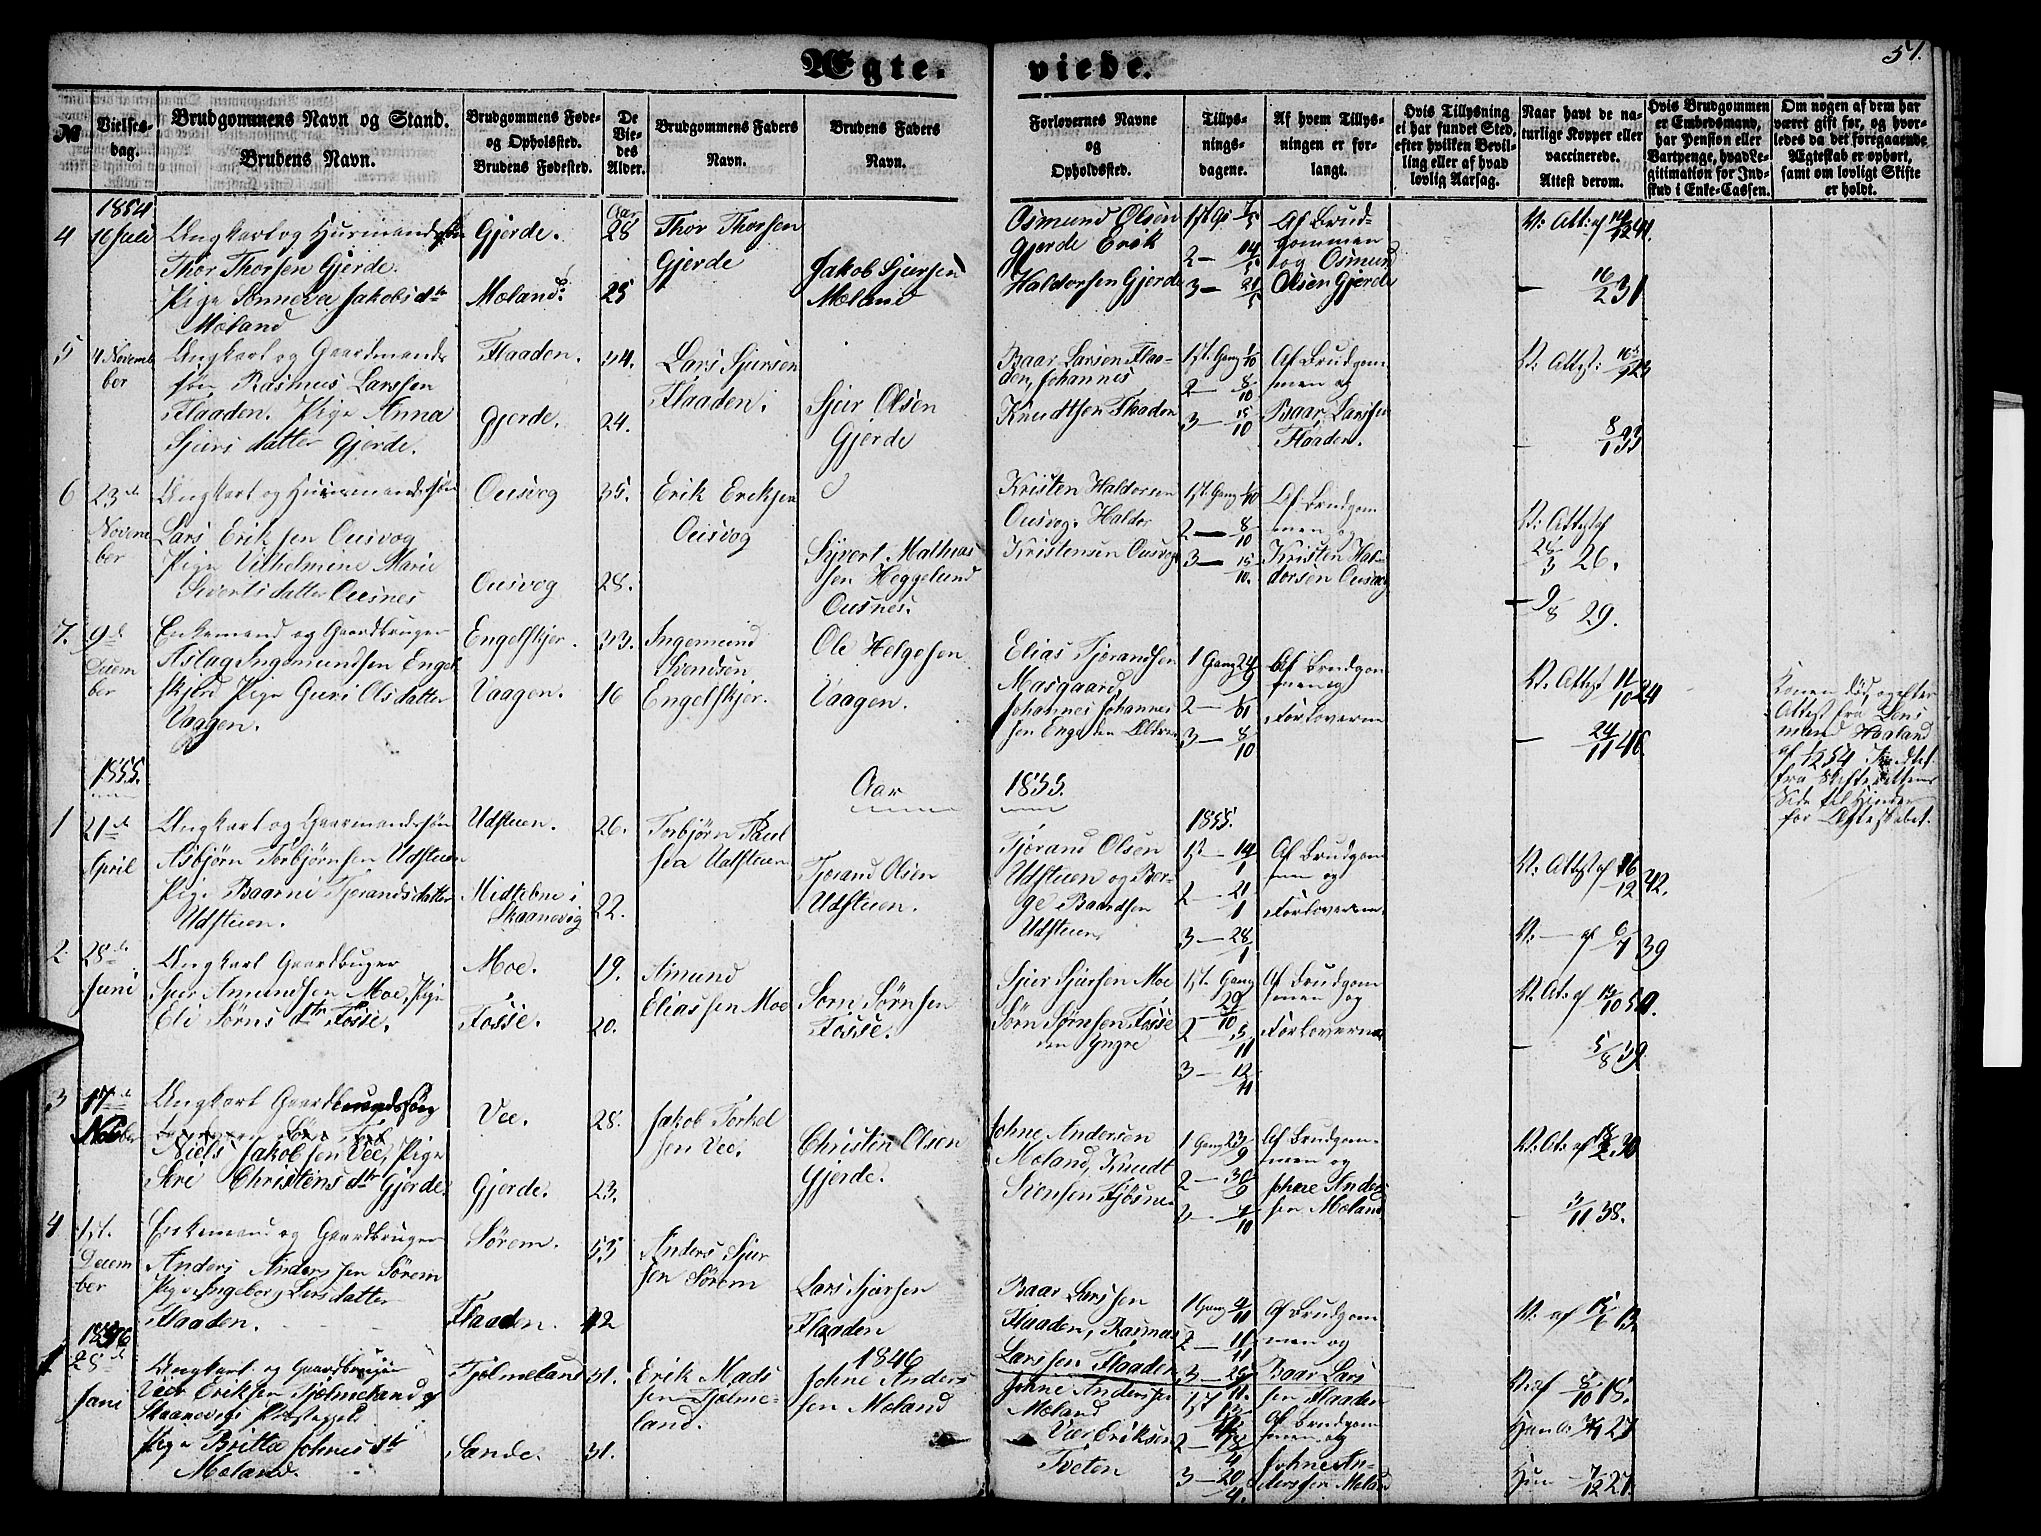 Ægte-
viede.
51.
№
Vielses-
dag.
Brudgommens Navn og Stand.
Brudens Navn.
Brudgommens Føde-
og Opholsted.
Brudens Fødested.
De
Vie-
des
Alder.
Brudgommens Faders
Navn.
Brudens Faders
Navn.
Forlovernes Navne
og
Opholdssted.
Tillys-
nings-
dagene.
Af hvem Tillys-
ningen er for-
langt.
Hvis Tillysning
ei har fundet Sted,
efter hvilken Bevil-
ling eller af hvad
lovlig Aarsag.
Naar havt de na-
turlige Kopper eller
vaccinerede.
Attest derom.
Hvis Brudgommen
er Embedsmand,
har Pension eller
Vartpenge, hvad Le-
gitimation for Ind-
skud i Enke-Cassen.
Om nogen af dem har
været gift før, og hvor-
ledes da det foregaaende
Ægteskab er ophørt,
samt om lovligt Skifte
er holdt.
1854
4
16 Juli
Ungkarl og Huusmandssøn
Thor Thorsen Gjerde.
Pige Sønneva Jakobsdtr
Moland
Gjerde.
Moland.
Aar
28
25
Thor Thorsen
Gjerde
Jakob Sjursen
Moland
Osmund Olsen
Gjerde Erik
Haldorsen Gjerde
1st G. 7/5
2 — 14/5
3 — 21/5
Af Brud-
gommen
og Osmund
Olsen Gjerde
V: Att: af
— 16/2 31
5
4 Novem-
ber
Ungkarl og Gaardmands
søn Rasmus Larssen
Flaaden. Pige Anna
Sjursdatter Gjerde.
Flaaden.
Gjerde.
34.
24.
Lars Sjursen
Flaaden.
Sjur Olsen
Gjerde
Baar Larsen Flaa-
den, Johannes
Knudtsen Flaaden
1st. Gang 1/10
2 — 8/10
3 — 15/10
Af Brudgom
men og
Baar Larssen
Flaaden.
V: Attest:
— 8/1 33
6
23de
Novem
ber
Ungkarl og Huusmandssøn
Lars Eriksen Ousvog
Pige Vilhelmine Marie
Sivertsdatter Ousnes
Ousvog
Ousvog
35.
28.
Erik Eriksen
Ousvog
Syvert Mathias
sen Heggelund
Ousnes.
Kristen Haldorsen
Ousvog. Haldor
Kristensen Ousvog
1st. Gang 1/10
2 — 8/10
3 — 15/10.
Af Brudgom
men og
Kristen Hal-
dorsen Ousvog
V: Attest af
28/3 26.
— 9/8 29.
7.
9de
Decem
ber
Enkemand og Gaardbruger
Aslag Ingemundsen Engel
skjøn Pige Guri Olsdatter
Vaagen.
Engelskjer.
Vaagen.
33.
16
Ingemund
Svendsen
Engelskjer.
Ole Helgesen
Vaagen.
Elias Tjørandsen
Masgaard,
Johannes Johannes
sen Enge den Eldre
1 Gang 24/9
2 — 1/10
3 — 8/10
Af Brudgom
men og
Forloverne
V: Attest 11/10 24
— 24/11 46
Konen død efter
Attest fra Lens
mand Haaland
af 1/12 54
fra Skifterettens
Side til Hinder
for Ægteskabet.
1855.
Aar
1855.
1
21de
April
Ungkarl og Gaarmandssøn
Asbjørn Torbjørnsen Udsteen
Pige Baarni Tjørandsdatter
Udsteen.
Udsteen.
Midtebøe i
Skaanevig
26.
22.
Torbjørn Paul
sen Udsteen
Tjørand Olsen
Udsteen.
Tjørand Olsen
Udsteen og Bør-
ge Baardsen
Udsteen
1855.
1st — 14/1
2 — 21/1
3 — 28/1
Af Brudgom
men og
Forloverne.
V: Attest af 16/12 42.
V: — af 6/7 39
2.
28de
Juni
Ungkarl Gaardbruger
Sjur Amundsen Moe, Pige
Eli Sørnsdtr Fosse.
Moe.
Fosse.
19.
20.
Amund
Eliassen Moe
Sørn Sørnsen
Fosse.
Sjur Sjursen Moe
Sørn Sørnsen Fosse
den Yngre
1st. Gang
29/10
2 — 5/11
3 — 12/11
Af Brudgom
men og
Forloverne
V: At: af
— 5/8 39.
3
17de
Novbr
Ungkarl Gaardmandssøn
Niels Jakobsen Vee, Pige
Siri Christensdtr Gjerde.
Vee.
Gjerde.
28.
23.
Jakob Torkel
sen Vee.
Christen Olsen
Gjerde.
Johne Andersen
Moland, Knudt
Siensen Tjøsne
1 Gang 23/9
2 — 30/9
3 — 7/10
Af Brudgom-
men og
Johne Anders
sen Moland
V: At: af
— 38.
4
1st.
Decem
ber
Enkemand og Gaardbruger
Anders Anderssen Sørem
Pige Ingeborg Larsdatter
Flaaden.
Sørem.
Flaaden.
55
42
Anders Sjur
sen Sørem
Lars Sjursen
Flaaden
Baar Larssen
Flaaden, Rasmus
Larssen Flaaden
1 Gang 4/11
2 — 11/11
3 — 25/11.
Af Brudgom
men og
Baar Lars
sen Flaaden
V: af
V: af 8/10 15.
1856
1846
1
28de
Juni
Ungkarl og Gaardbruger
Veer Eriksen Tjølmeland af
Skaanevigs Præstegjeld
Pige Britta Johnesdtr
Moland.
Tjølmeland
Sande.
31.
31.
Erik Mads
sen Tjølme-
land.
Johne Anders
sen Moland
Johne Anderssen
Moland
Veer Eriksen
Tveten
1st 13/4
2 — 18/4
3 — 20/4.
Af Brudgom
men og
Johne An-
derssen Moland
Hun 7/12 27.